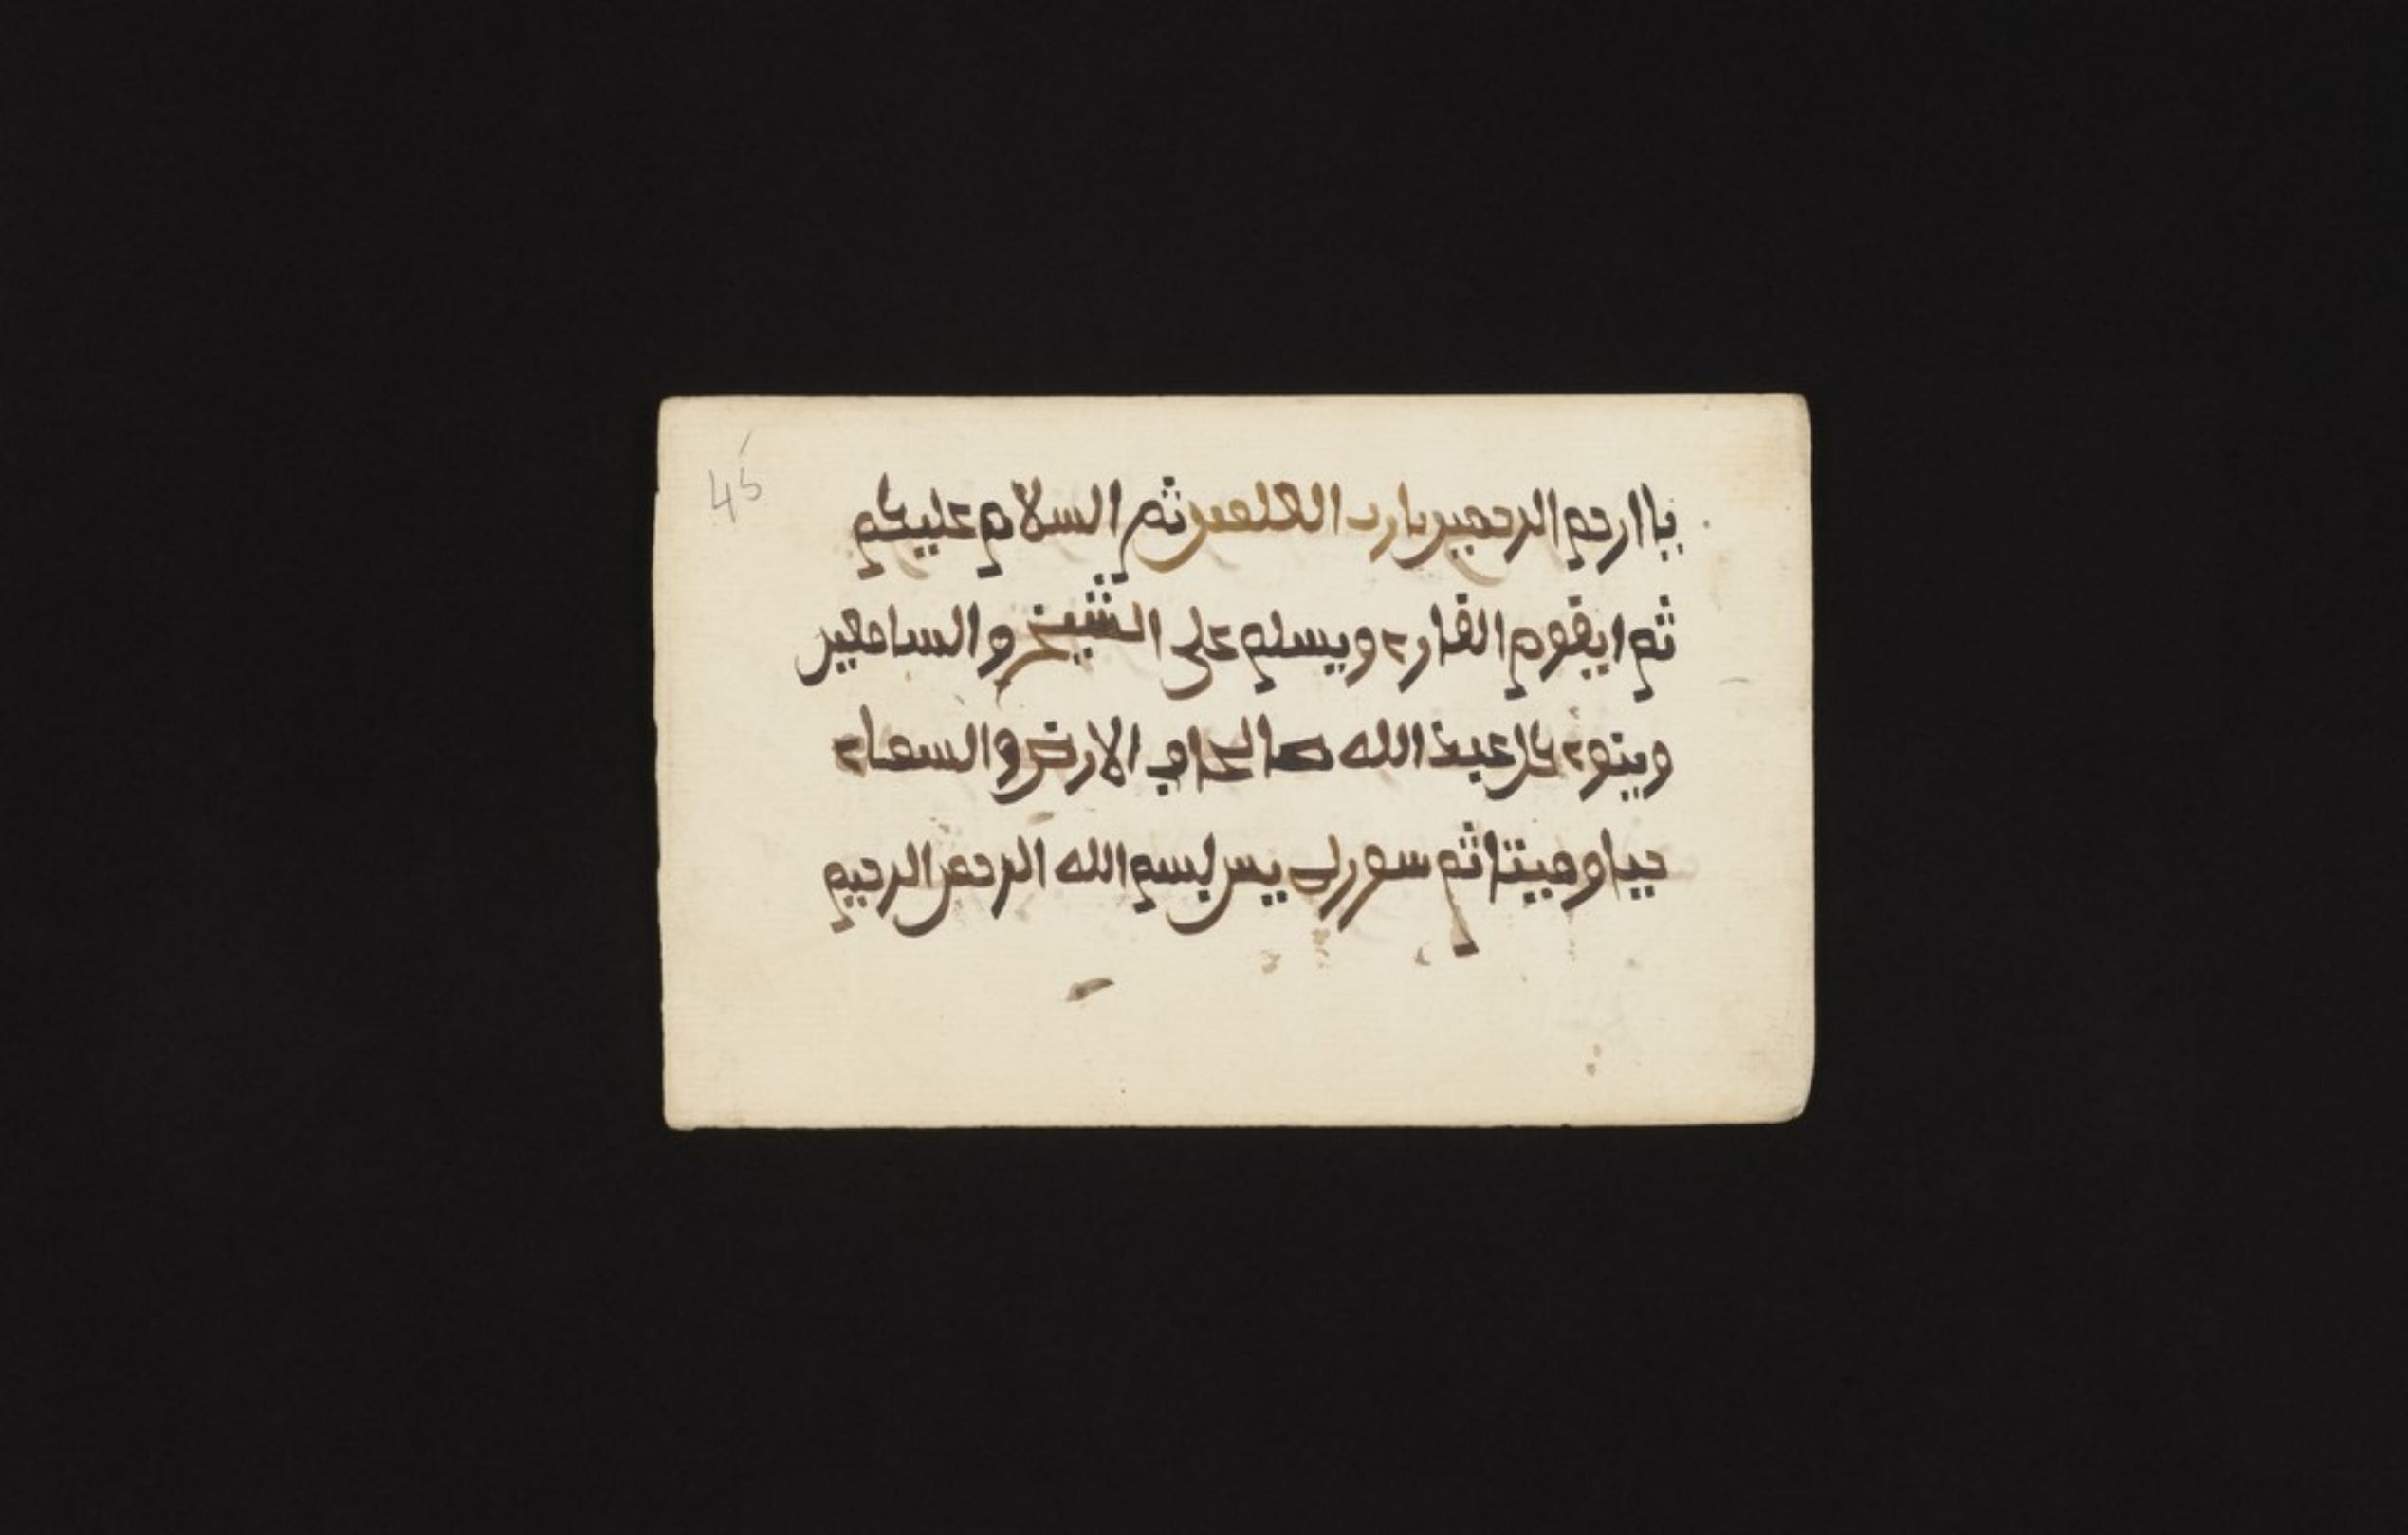 45
يا ارحم الرحمين يا رب العلمين ثم السلام عليكم
ثم ا يقوم القارء ويسلم على الشيخ و السامعين
وينوء كل عبد الله صالحا في الارض والسماء
حيا وميتا ثم سورة يس بسم الله الرحمن الرحيم